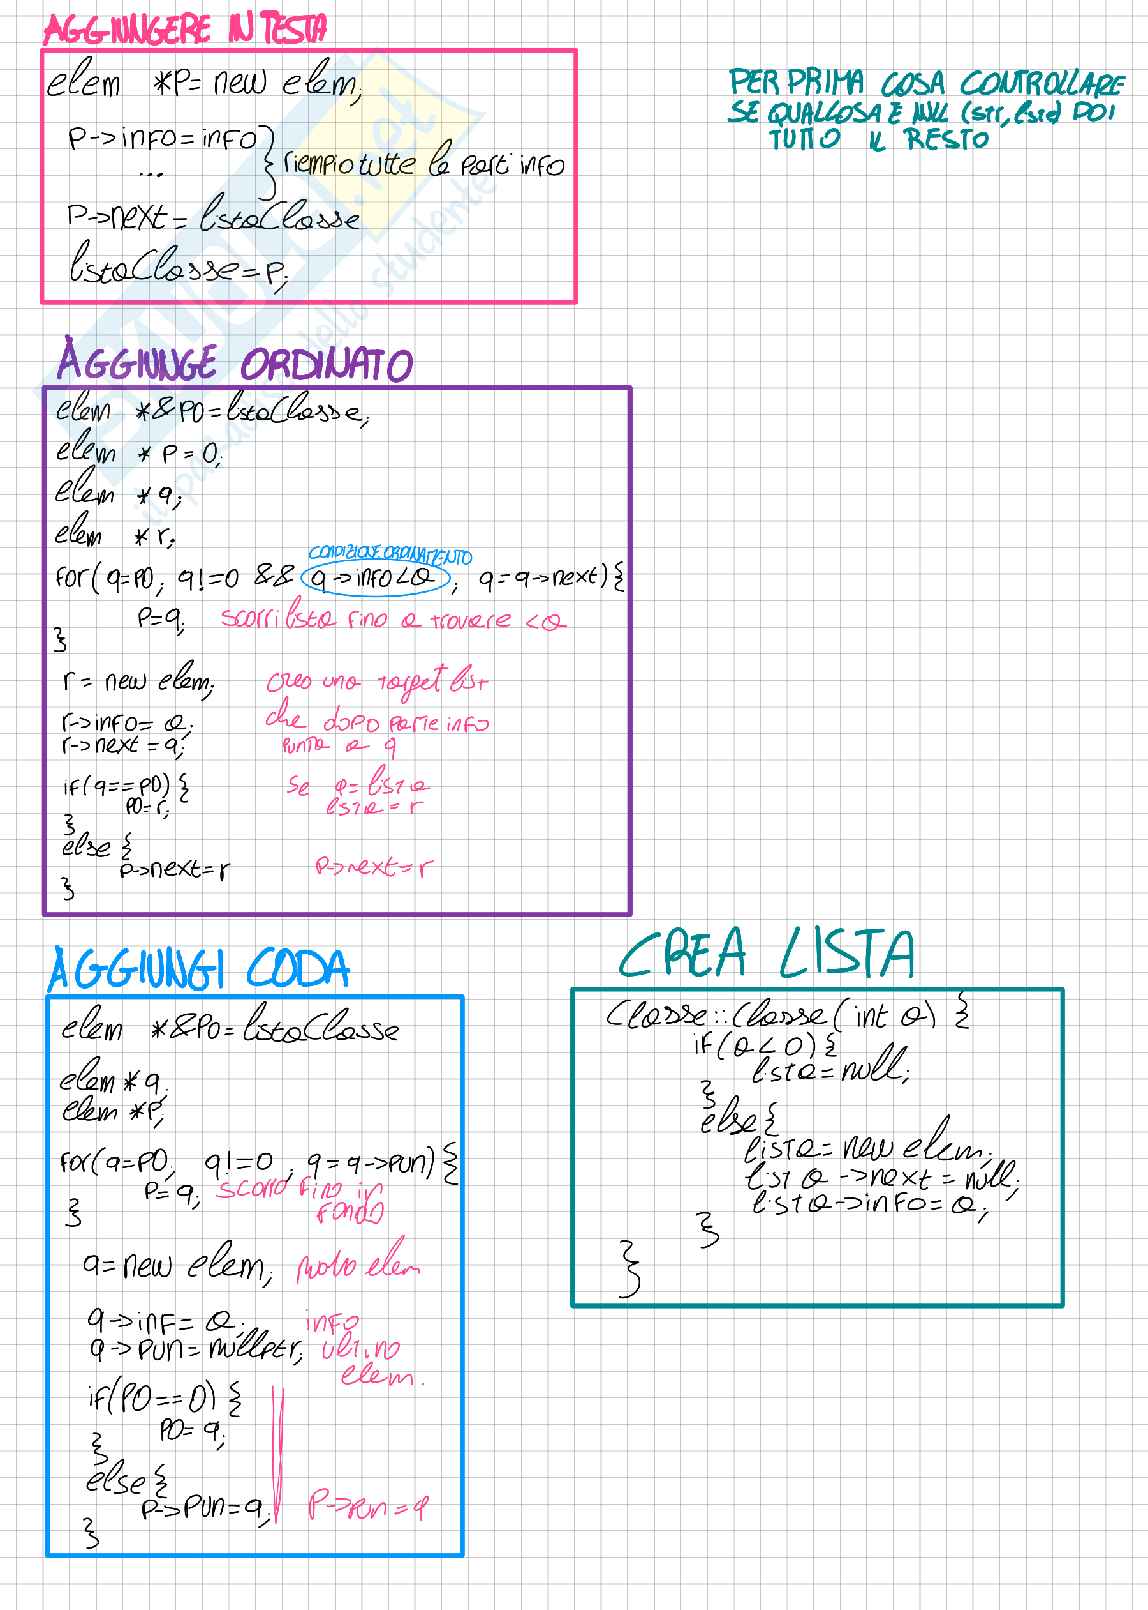 AGGIUNGERE IN TESTA
elem *p= new elem;
p->info=info
... } riempio tutte le parti info
p->next = listaClasse
listaClasse=p;
PER PRIMA COSA CONTROLLARE
SE QUALCOSA È NULL (str, lista) POI
TUTTO IL RESTO
AGGIUNGE ORDINATO
elem *&p0=listaClasse;
elem * p = 0;
elem *q;
elem * r;
CONDIZIONE ORDINAMENTO
for(q=p0; q!=0 && q->info<a; q=q->next){
p=q; scorri lista fino a trovare <a
}
r = new elem; creo una target list
r->info= a; che dopo parte info
r->next = q; punta a q
if(q==p0) { se q=lista
p0=r; lista=r
}
else {
p->next=r p->next=r
}
AGGIUNGI CODA
elem *&p0=listaClasse
elem*q;
elem *p;
for(q=p0; q!=0; q=q->pun){
p=q; scorro fino in
} fondo
q=new elem; nuovo elem
q->inf= a; info
q->pun=nullptr; ultimo
elem.
if(p0==0) {
p0=q;
}
else{
p->pun=q; p->pun=q
}
CREA LISTA
Classe::Classe(int a) {
if(a<0){
lista=null;
}
else{
lista=new elem;
lista->next=null;
lista->info=a;
}
}